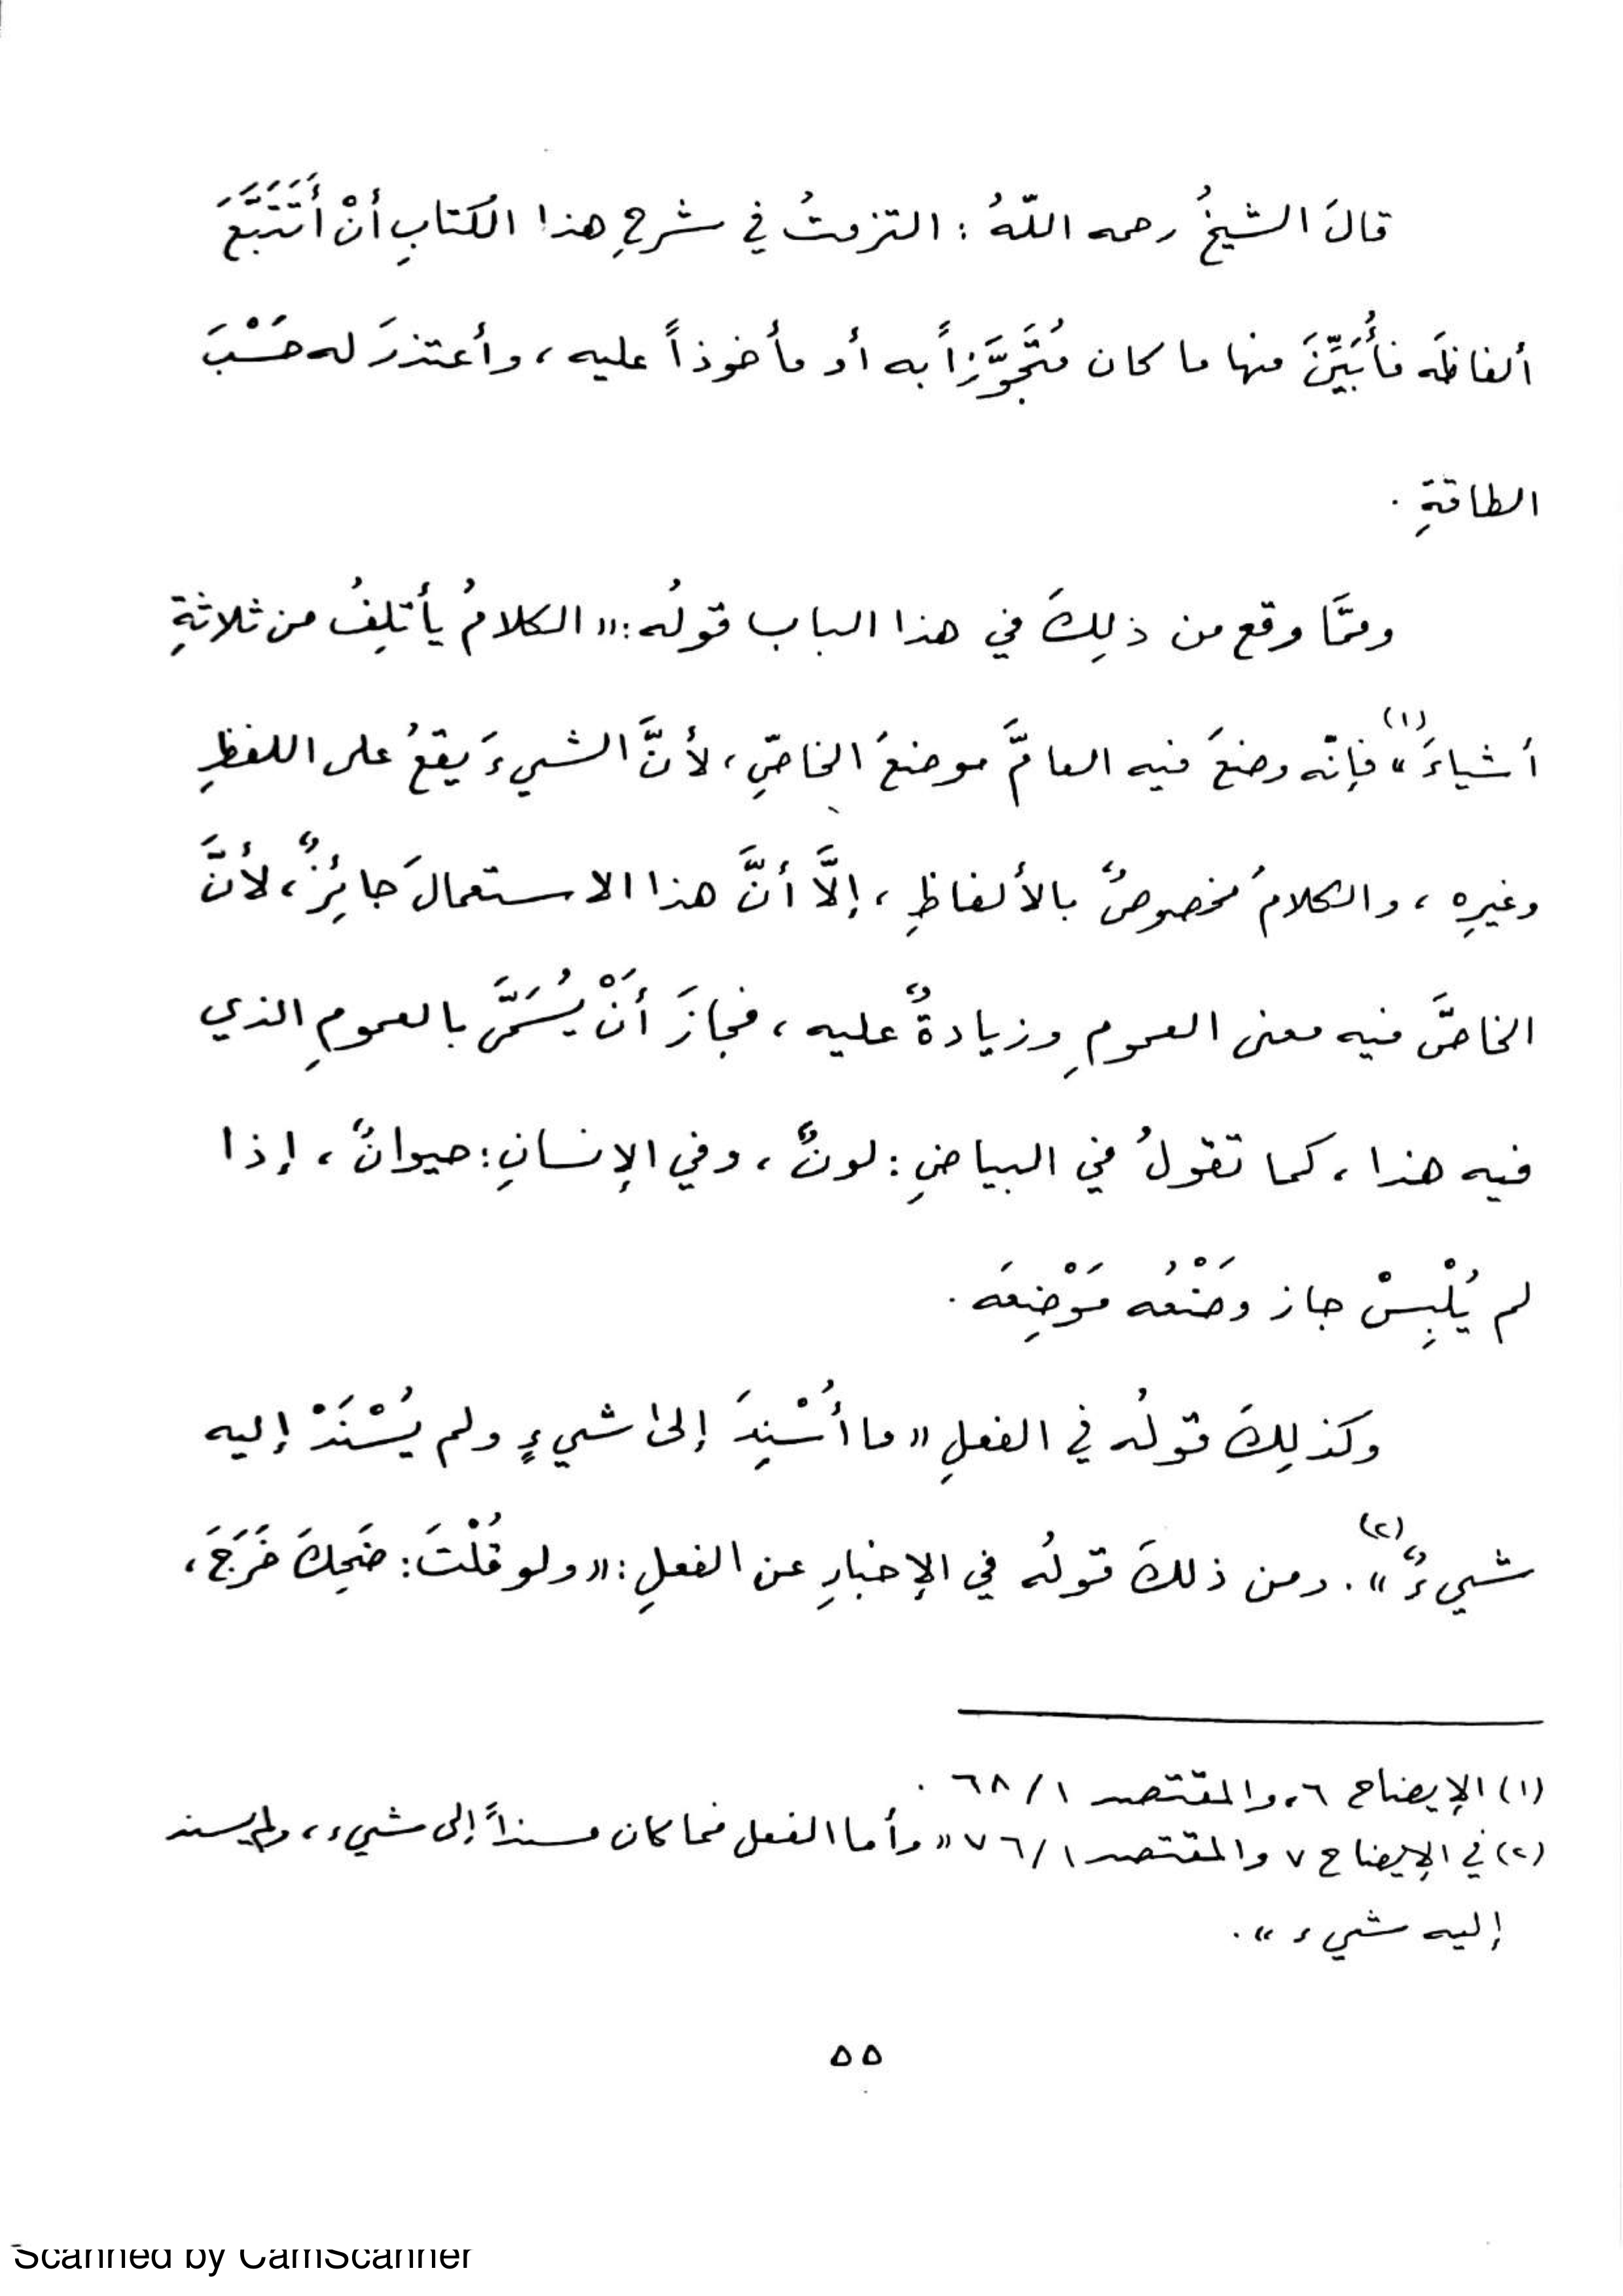 قالَ الشيخُ رحمه اللّهُ : التزمتُ في شرحِ هذا الكتابِ أنْ أَتَتَبَّعَ
ألفاظَه فأُبَيِّنَ منها ما كان مُتَجَوَّزاً به أو مأخوذاً عليه ، وأعتذرَ له حَسْبَ
الطاقةِ .
وممَّا وقع من ذلِكَ في هذا الباب قولُه : « الكلامُ يأتلِفُ من ثلاثةِ
أشياءَ »(١) فإنّه وضعَ فيه العامَّ موضعَ الخاصِّ ، لأنَّ الشيءَ يقعُ على اللفظِ
وغيرِه ، والكلامُ مخصوصٌ بالألفاظِ ، إلَّا أنَّ هذا الاستعمالَ جائِزٌ ، لأنَّ
الخاصَّ فيه معنى العمومِ وزيادةٌ عليه ، فجازَ أَنْ يُسَمَّى بالعمومِ الذي
فيه هذا ، كما تقولُ في البياضِ : لونٌ ، وفي الإنسانِ : حيوانٌ ، إذا
لم يُلْبِسْ جاز وَضْعُه مَوْضِعَه .
وكذلِكَ قولُه في الفعلِ « ما أُسْنِدَ إلى شيءٍ ولم يُسْنَدْ إليه
شيءٌ »(٢) . ومن ذلكَ قولُه في الإخبارِ عن الفعلِ : « ولو قُلْتَ : ضَحِكَ خَرَجَ ،
(١) الإيضاح ٦، والمقتصد ١/ ٦٨ .
(٢) في الإيضاح ٧ والمقتصد ١/ ٧٦ « وأما الفعل فما كان مسنداً إلى شيء ، ولم يسند
إليه شيء » .
٥٥
Scanned by CamScanner